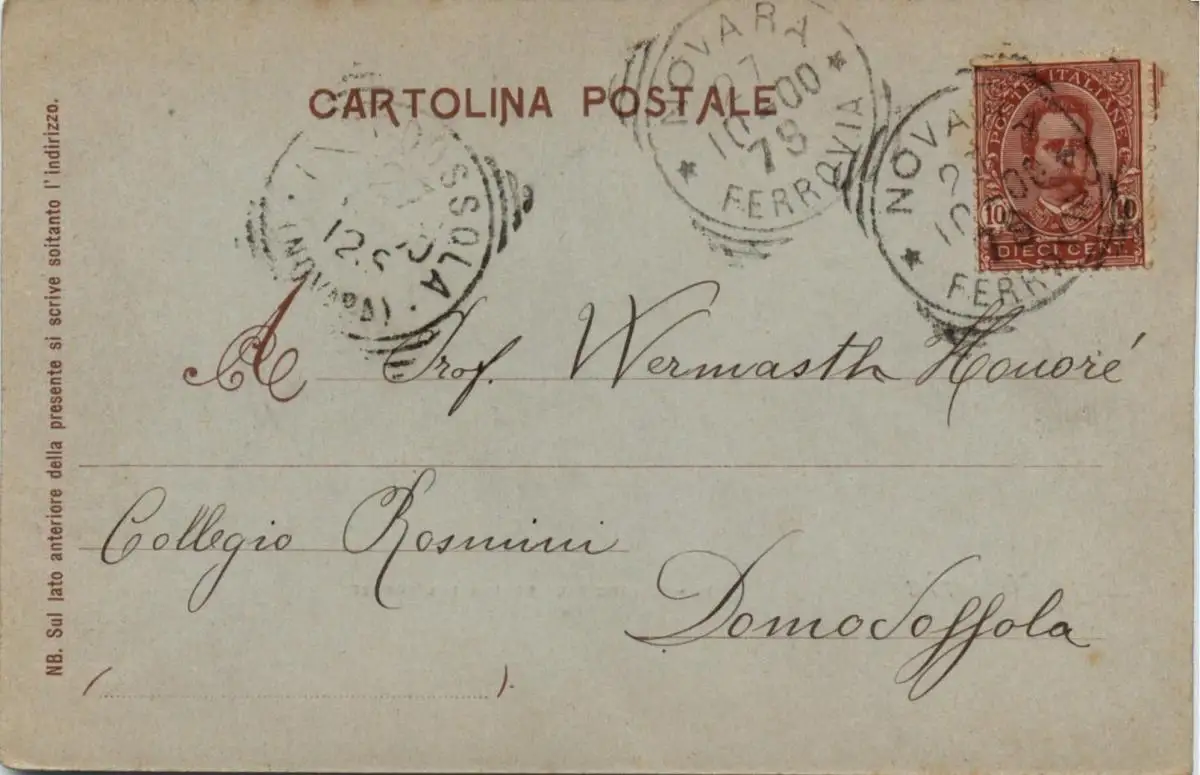 CARTOLINA POSTALE
NOVARA
27
10 00
78
FERROVIA
NOVARA
10
FERR
POSTE ITALIANE
10 10
DIECI CENT.
OSSOLA
(NOVARA)
A Prof. Wermasth Honoré
Collegio Rosmini
Domodossola
( ).
NB. Sul lato anteriore della presente si scrive soltanto l'indirizzo.